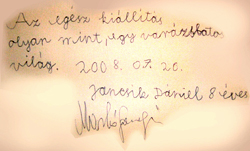 Az egész kiállítás
olyan mint, egy varázslatos
világ. 2008. 07. 20.
Jancsik Dániel 8 éves